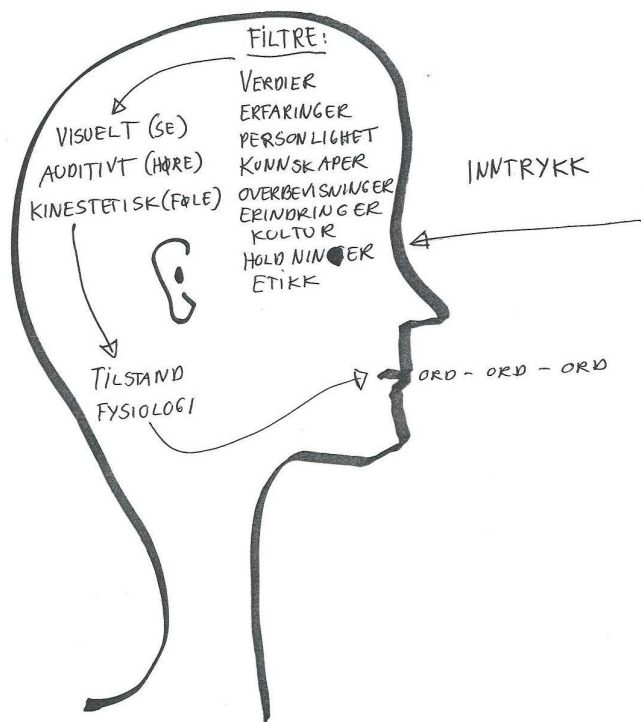 FILTRE:
VERDIER
ERFARINGER
PERSONLIGHET
KUNNSKAPER
OVERBEVISNINGER
ERINDRINGER
KULTUR
HOLDNINGER
ETIKK
VISUELT (SE)
AUDITIVT (HØRE)
KINESTETISK (FØLE)
TILSTAND
FYSIOLOGI
INNTRYKK
ORD - ORD - ORD